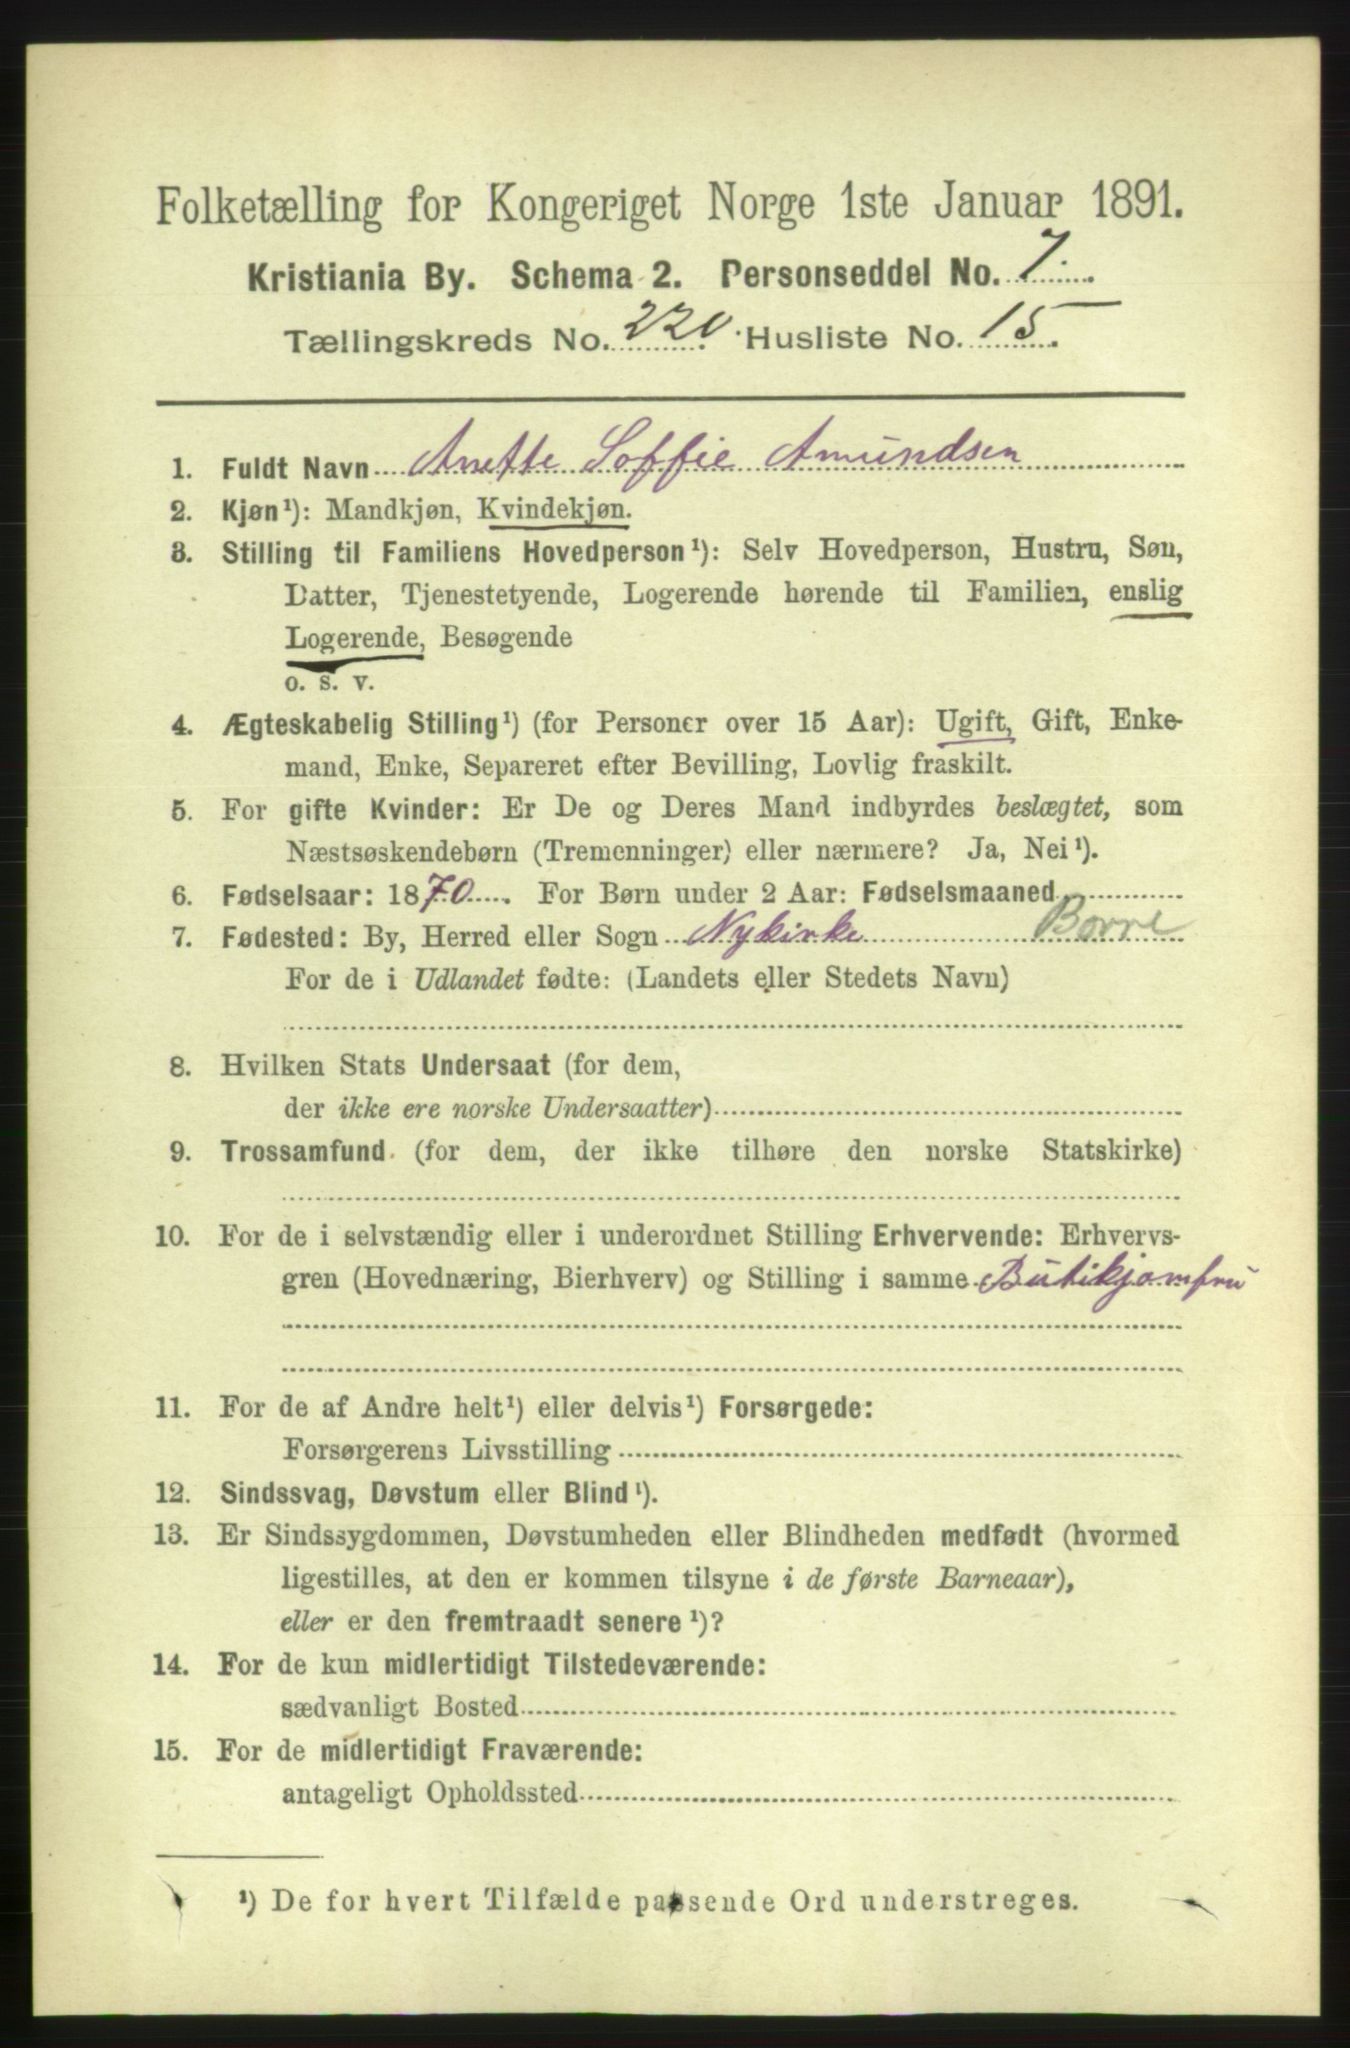 Folketælling for Kongeriget Norge 1ste Januar 1891.
Kristiania By. Schema 2. Personseddel No. 7
Tællingskreds No. 220 Husliste No. 15
1. Fuldt Navn Anette Soffie Amundsen
2. Kjøn¹): Mandkjøn, Kvindekjøn.
3. Stilling til Familiens Hovedperson¹): Selv Hovedperson, Hustru, Søn,
Datter, Tjenestetyende, Logerende hørende til Familien, enslig
Logerende, Besøgende
o. s. v.
4. Ægteskabelig Stilling¹) (for Personer over 15 Aar): Ugift, Gift, Enke-
mand, Enke, Separeret efter Bevilling, Lovlig fraskilt.
5. For gifte Kvinder: Er De og Deres Mand indbyrdes beslægtet, som
Næstsøskendebørn (Tremenninger) eller nærmere? Ja, Nei¹).
6. Fødselsaar: 1870. For Børn under 2 Aar: Fødselsmaaned
7. Fødested: By, Herred eller Sogn Nykirke Borre
For de i Udlandet fødte: (Landets eller Stedets Navn)
8. Hvilken Stats Undersaat (for dem,
der ikke ere norske Undersaatter)
9. Trossamfund (for dem, der ikke tilhøre den norske Statskirke)
10. For de i selvstændig eller i underordnet Stilling Erhvervende: Erhvervs-
gren (Hovednæring, Bierhverv) og Stilling i samme Butikjomfru
11. For de af Andre helt¹) eller delvis¹) Forsørgede:
Forsørgerens Livsstilling
12. Sindssvag, Døvstum eller Blind¹).
13. Er Sindssygdommen, Døvstumheden eller Blindheden medfødt (hvormed
ligestilles, at den er kommen tilsyne i de første Barneaar),
eller er den fremtraadt senere¹)?
14. For de kun midlertidigt Tilstedeværende:
sædvanligt Bosted
15. For de midlertidigt Fraværende:
antageligt Opholdssted
¹) De for hvert Tilfælde passende Ord understreges.